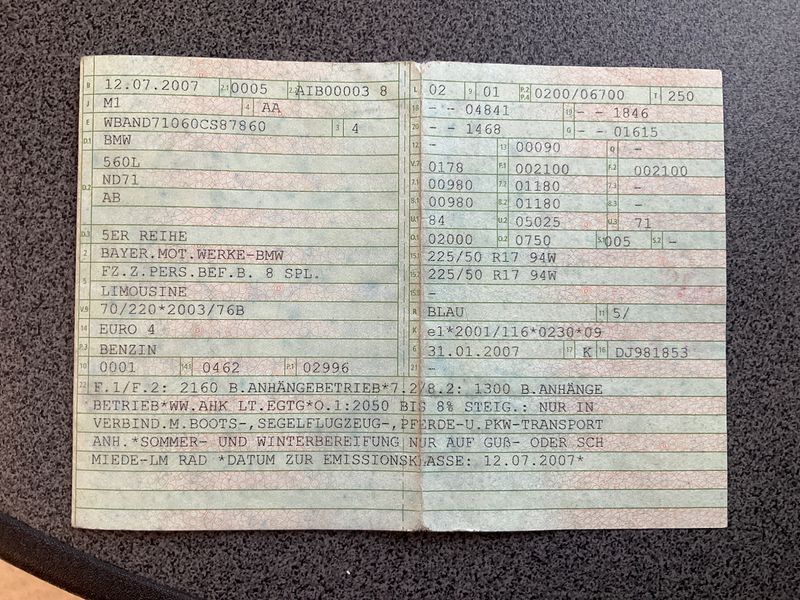 B 12.07.2007 2.1 0005 2.2 AIB00003 8
J M1 4 AA
E WBAND71060CS87860 3 4
D.1 BMW
D.2 560L
ND71
AB
D.3 5ER REIHE
2 BAYER.MOT.WERKE-BMW
5 FZ.Z.PERS.BEF.B. 8 SPL.
LIMOUSINE
V.9 70/220*2003/76B
14 EURO 4
P.3 BENZIN
10 0001 14.1 0462 P.1 02996
L 02 9 01 P.2 P.4 0200/06700 T 250
18 - - 04841 19 - - 1846
20 - - 1468 G - - 01615
12 - 13 00090 Q -
V.7 0178 F.1 002100 F.2 002100
7.1 00980 7.2 01180 7.3 -
8.1 00980 8.2 01180 8.3 -
U.1 84 U.2 05025 U.3 71
O.1 02000 O.2 0750 S.1 005 S.2 -
15.1 225/50 R17 94W
15.2 225/50 R17 94W
15.3 -
R BLAU 11 5/
K e1*2001/116*0230*09
6 31.01.2007 17 K 16 DJ981853
21 -
22 F.1/F.2: 2160 B.ANHÄNGEBETRIEB*7.2/8.2: 1300 B.ANHÄNGE
BETRIEB*WW.AHK LT.EGTG*O.1:2050 BIS 8% STEIG.: NUR IN
VERBIND.M.BOOTS-,SEGELFLUGZEUG-,PFERDE-U.PKW-TRANSPORT
ANH.*SOMMER- UND WINTERBEREIFUNG NUR AUF GUß- ODER SCH
MIEDE-LM RAD *DATUM ZUR EMISSIONSKLASSE: 12.07.2007*